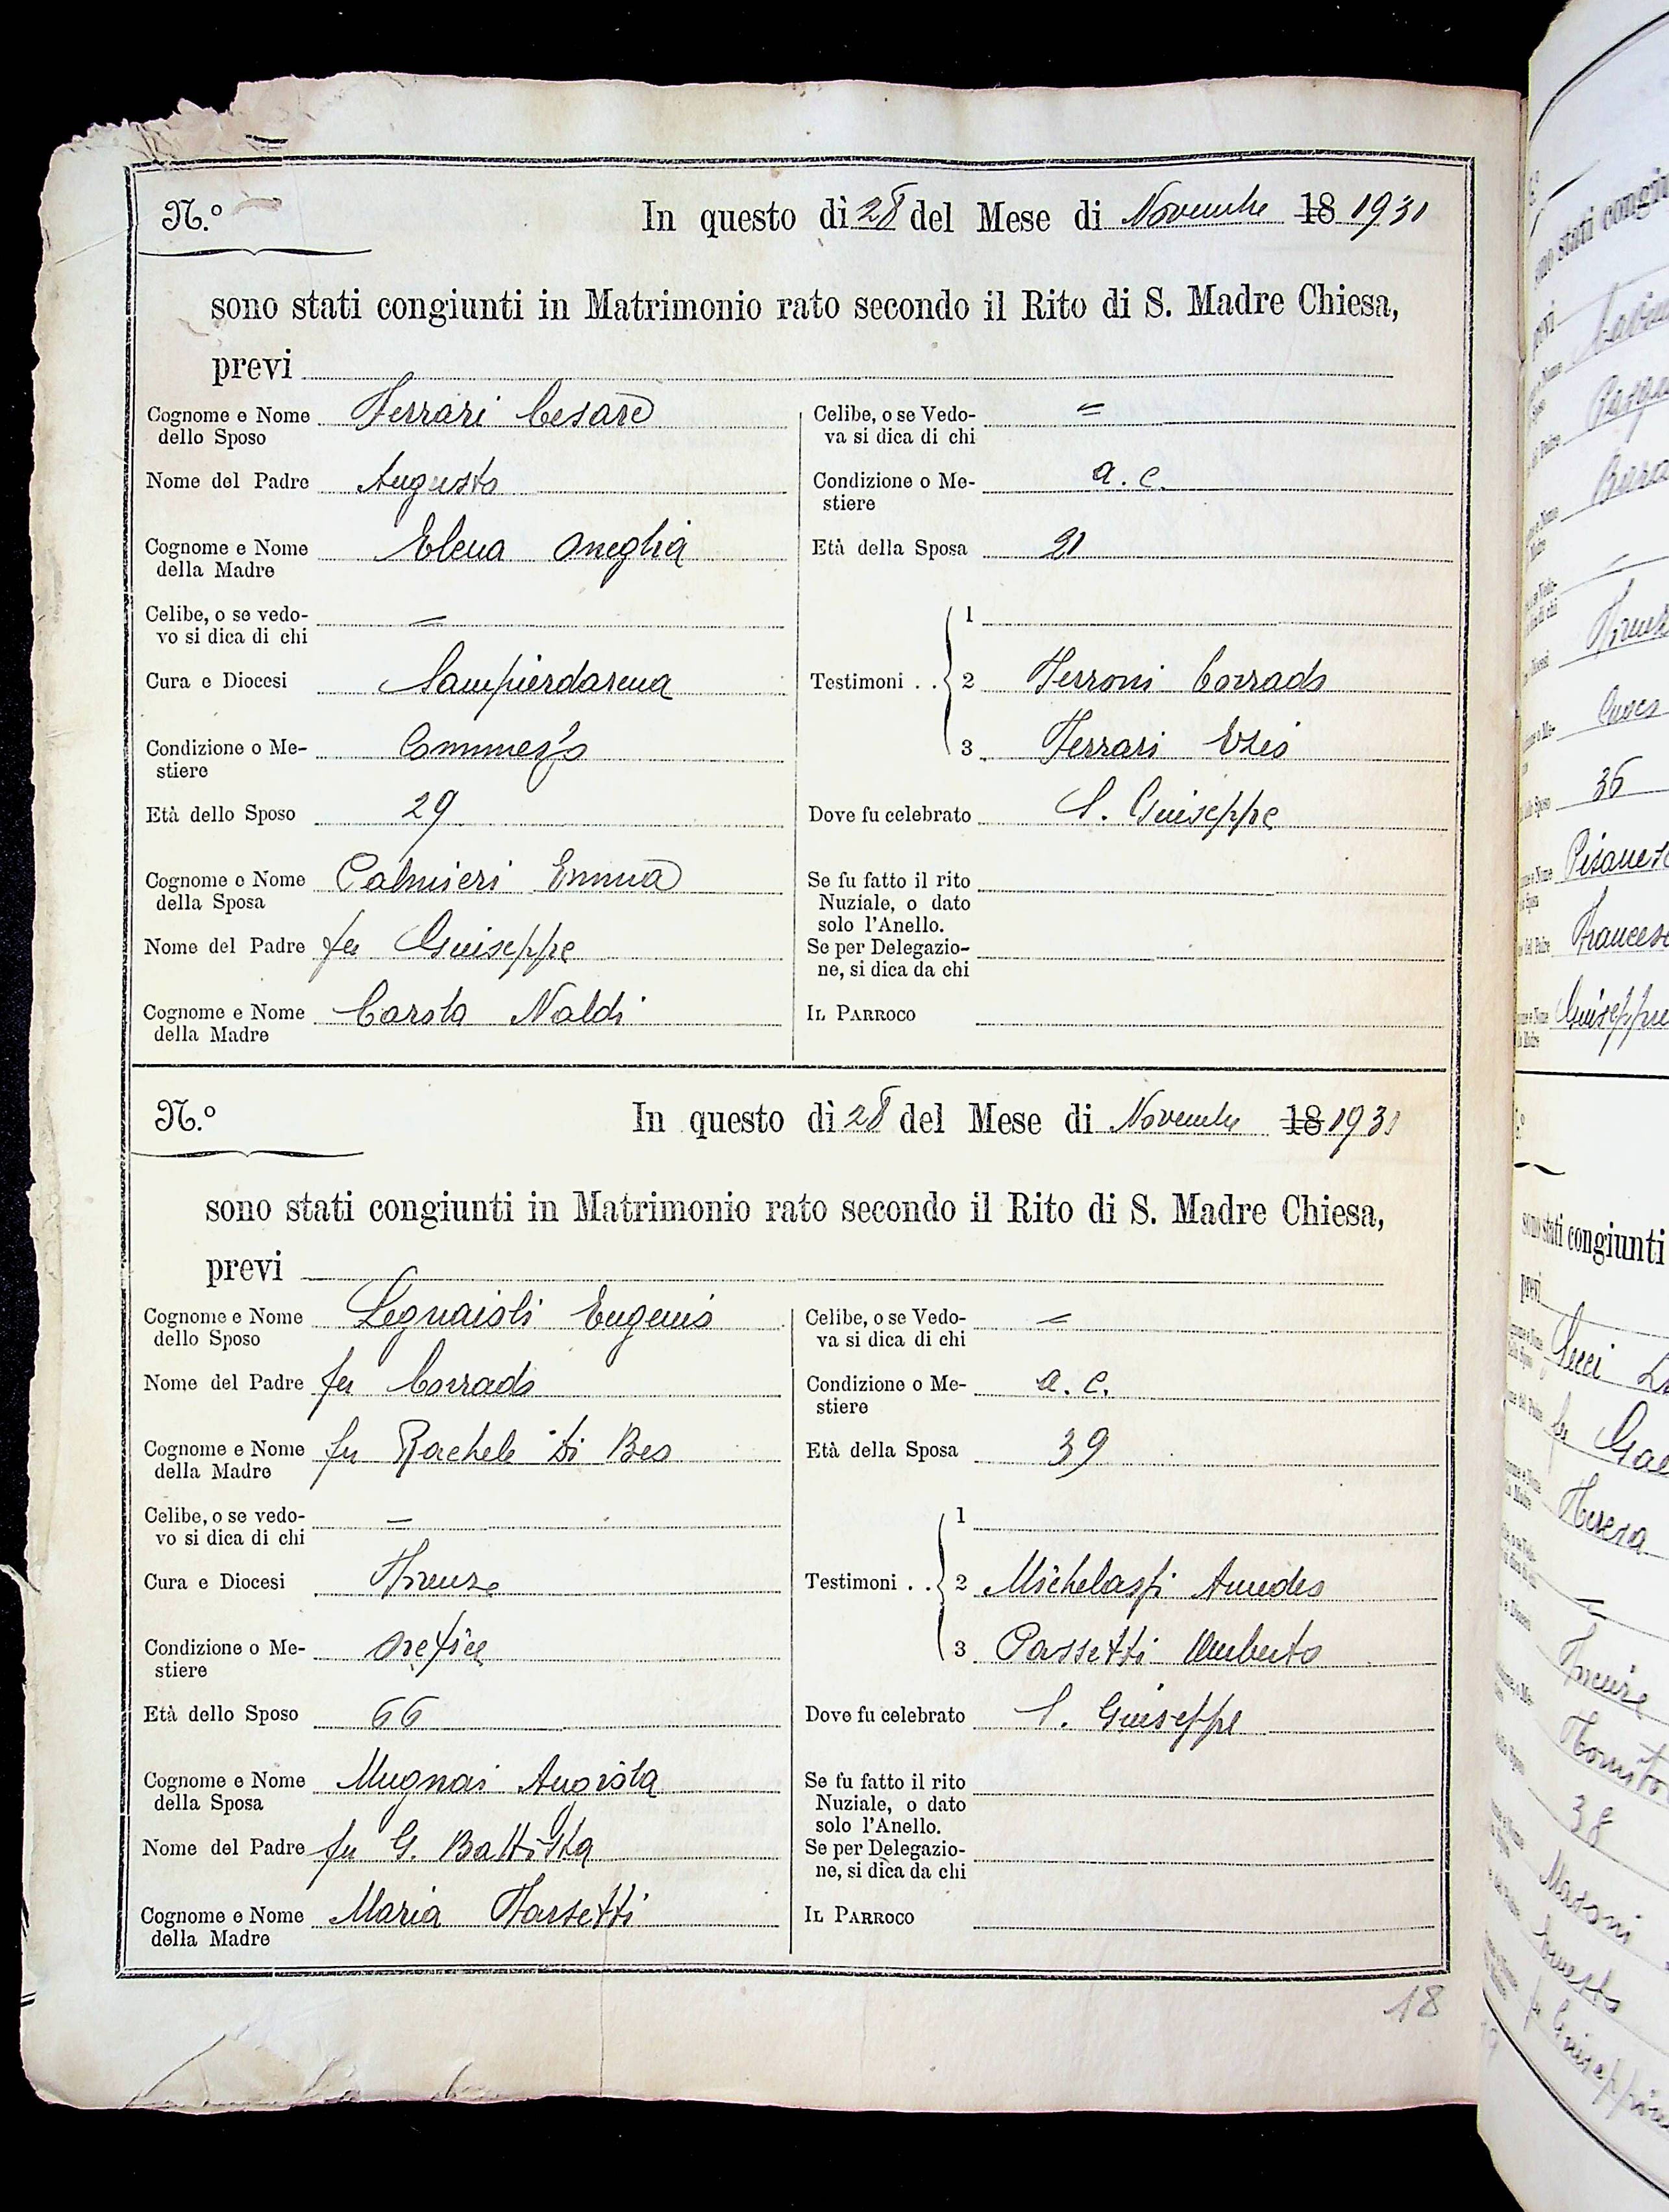 N.º In questo dì 28 del Mese di Novembre 18 1931
sono stati congiunti in Matrimonio rato secondo il Rito di S. Madre Chiesa,
previ
Cognome e Nome Ferrari Cesare
dello Sposo
Nome del Padre Augusto
Cognome e Nome Elena Oneglia
della Madre
Celibe, o se vedo- =
vo si dica di chi
Cura e Diocesi Sampierdarena
Condizione o Me- Commerc°
stiere
Età dello Sposo 29
Cognome e Nome Palmieri Emma
della Sposa
Nome del Padre fu Giuseppe
Cognome e Nome Carola Naldi
della Madre
Celibe, o se Vedo- =
va si dica di chi
Condizione o Me- a. c.
stiere
Età della Sposa 21
1
Testimoni . . 2 Ferroni Corrado
3 Ferrari Ezio
Dove fu celebrato S. Giuseppe
Se fu fatto il rito
Nuziale, o dato
solo l'Anello.
Se per Delegazio-
ne, si dica da chi
IL PARROCO
N.º In questo dì 28 del Mese di Novembre 18 1931
sono stati congiunti in Matrimonio rato secondo il Rito di S. Madre Chiesa,
previ
Cognome e Nome Legnaioli Eugenio
dello Sposo
Nome del Padre fu Corrado
Cognome e Nome fu Rachele Di Beo
della Madre
Celibe, o se vedo- =
vo si dica di chi
Cura e Diocesi Firenze
Condizione o Me- orefice
stiere
Età dello Sposo 66
Cognome e Nome Mugnai
della Sposa
Nome del Padre fu G. Battista
Cognome e Nome Maria Farsetti
della Madre
Celibe, o se Vedo- =
va si dica di chi
Condizione o Me- a. c.
stiere
Età della Sposa 39
1
Testimoni . . 2 Amedeo
3 Passetti Umberto
Dove fu celebrato S. Giuseppe
Se fu fatto il rito
Nuziale, o dato
solo l'Anello.
Se per Delegazio-
ne, si dica da chi
IL PARROCO
18
sono stati congiunti
previ
36
Giuseppe
sono stati congiunti
previ
Teresa
38
Masoni